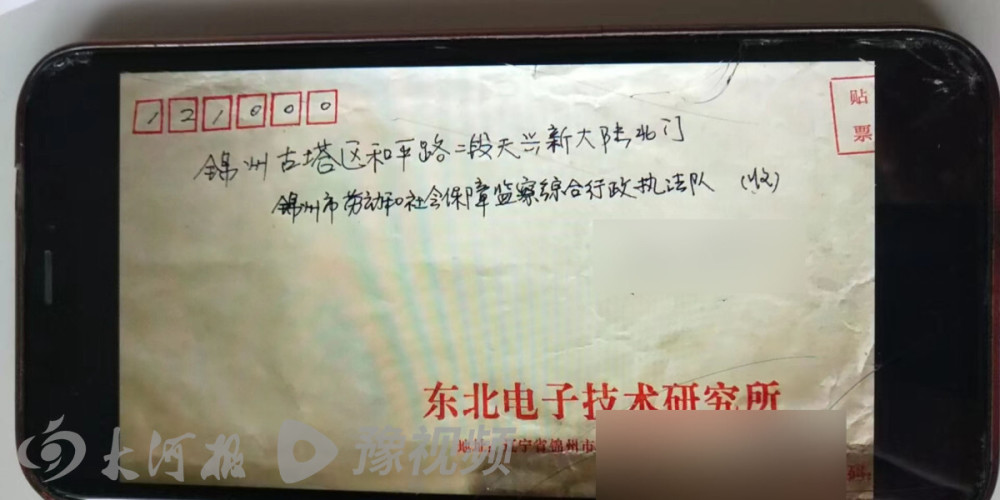 121000
贴
票
锦州古塔区和平路二段天兴新大陆北门
锦州市劳动和社会保障监察综合行政执法队 (收)
东北电子技术研究所
地址:辽宁省锦州市
大河报 豫视频